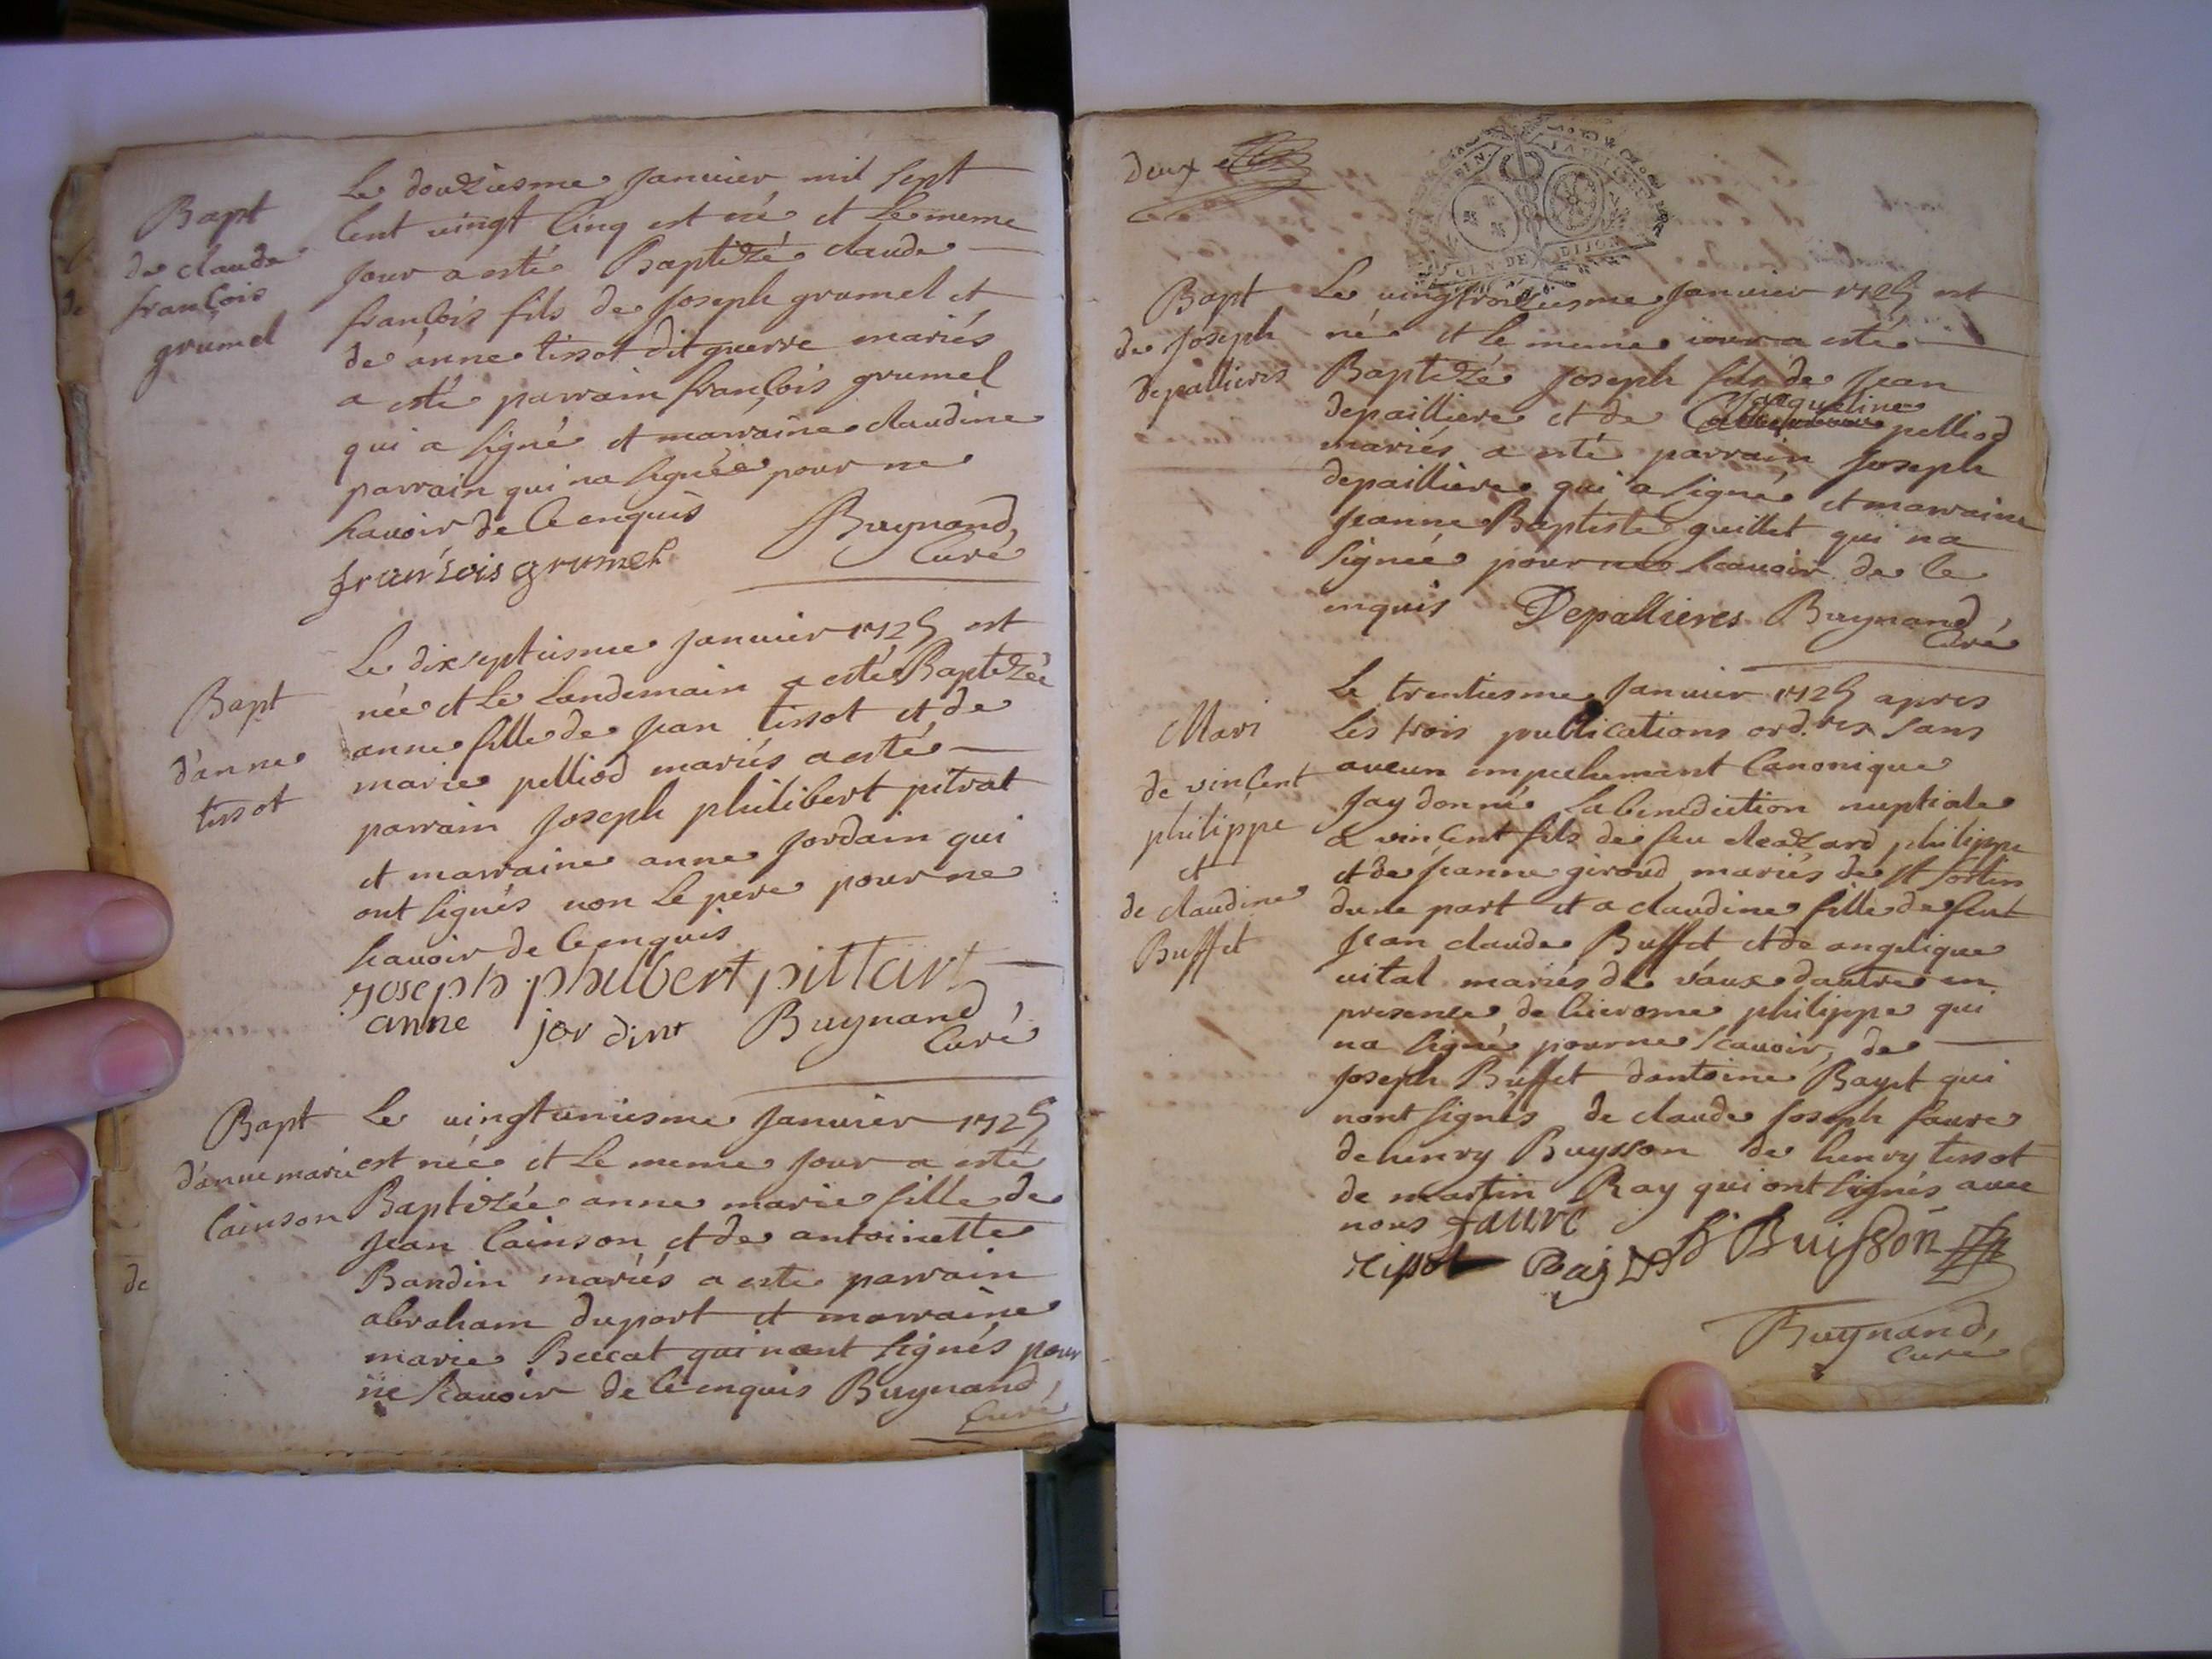 Bapt
de claude
francois
grumel
Le douziesme Janvier mil sept
Cent vingt Cinq est né et Le meme
Jour a esté Baptizé claude
francois fils de Joseph grumel et
de anne tissot dit guerre mariés
a esté parrain francois grumel
qui a signé et marraine claudine
parrain qui na signée pour ne
scavoir de ce enquis Buynand,
Curé
francois grumel
Bapt
d'anne
tissot
Le dixseptiesme Janvier 1725 est
née et Le Landemain a esté Baptizée
anne fille de Jean tissot et de
marie pelliod mariés a esté
parrain Joseph philibert pitrat
et marraine anne Jordain qui
ont signés non Le pere pour ne
scavoir de ce enquis
Joseph philbert pittart
anne jordint Buynand
Curé
Bapt
d'anne marie
Cainson
Le vingtuniesme Janvier 1725
est née et Le meme Jour a esté
Baptizée anne marie fille de
Jean Cainson et de antoinette
Bandin mariés a esté parrain
abraham duport et marraine
marie qui nont signés pour
ne scavoir de ce enquis Buynand,
Curé
de
deux
DE DIJON
Bapt
de Joseph
depallieres
Le vingtroisiesme Janvier 1725 est
né et Le meme iour a esté
Baptizé Joseph fils de Jean
Jacqueline
depailliere et de pelliod
mariés a esté parrain Joseph
depailliere qui a signé et marraine
Jeanne Baptiste guillet qui na
signée pour ne scavoir de ce
enquis Depallieres Buynand
Curé
Mari
de vincent
philippe
et
de claudine
Buffet
Le trentiesme Janvier 1725 apres
Les trois publications ord.res sans
aucun empechement Canonique
Jay donné La benediction nuptiale
a vincent fils de feu philippe
et de Jeanne giroud mariés de St Sorlin
dune part et a claudine fille de feut
Jean claude Buffet et de angelique
vital mariés de vaux dautre en
presence de hierome philippe qui
na signé pour ne scavoir, de
Joseph Buffet dantoine Bayet qui
nont signés de claude Joseph faure
de henry Buysson de henry tissot
de martin Ray qui ont signés avec
nous faure
tissot Ray h Buisson
Buynand,
Curé